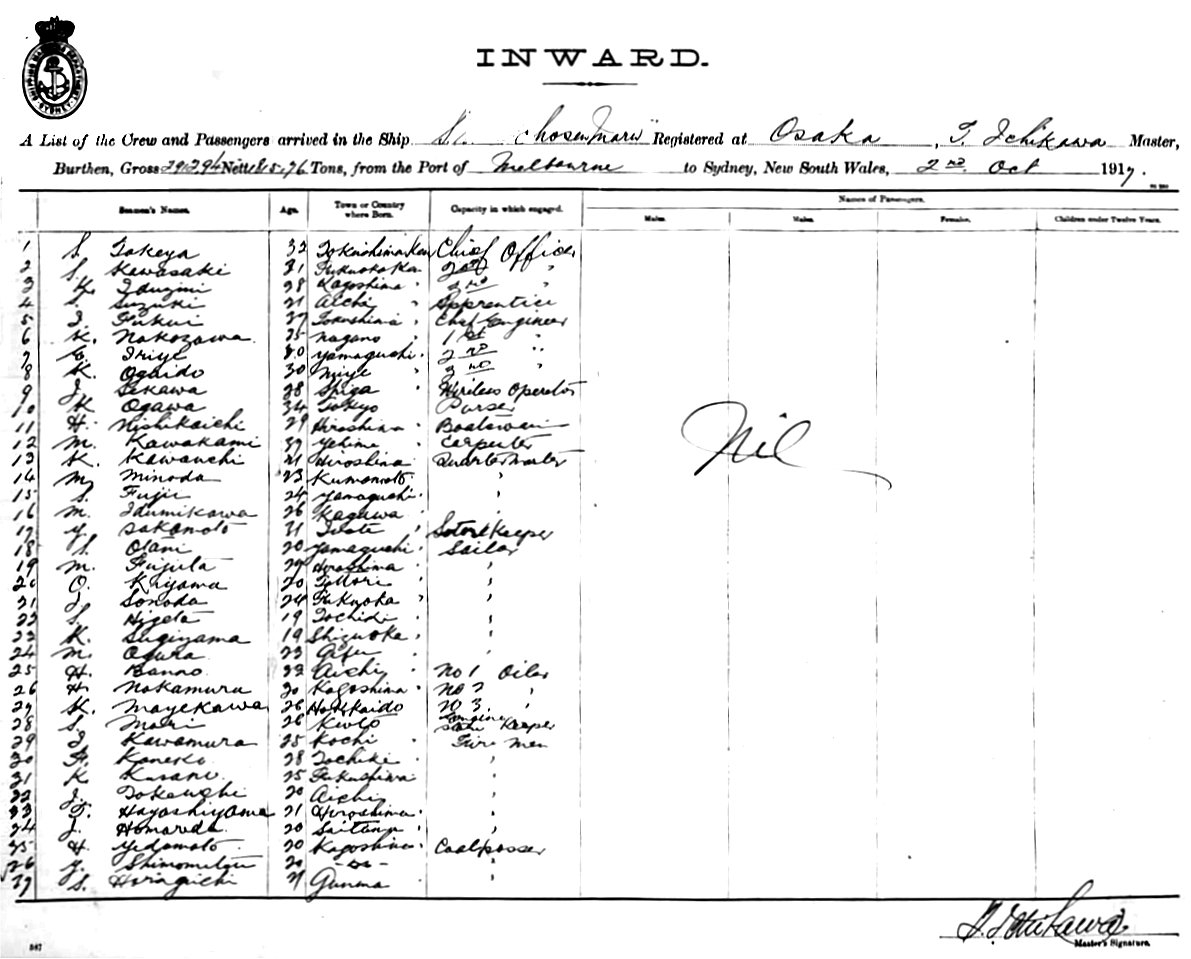 INWARD.
A List of the Crew and Passengers arrived in the Ship S. Chosen Maru Registered at Osaka, T. Ichikawa Master,
Burthen, Gross 2912.94 Nett 1815.76 Tons, from the Port of Melbourne to Sydney, New South Wales, 2nd Oct 1917.
Names of Passengers.
Seamen's Names. Age. Town or Country where Born. Capacity in which engaged. Males. Males. Females. Children under Twelve Years.
1 S. Takeya 32 Tokushima Ken Chief Officer
2 S. Kawasaki 31 Fukuoka Ken 2nd "
3 K. Idzumi 28 Kagoshima " 3rd "
4 S. Suzuki 21 Aichi " Apprentice
5 I. Fukui 37 Tokushima " Chief Engineer
6 K. Nakozawa 35 Nagano " 1st "
7 Iriye 30 Yamaguchi " 2nd "
8 K. Ogaido 30 Miye " 3rd "
9 Sekawa 28 Shiga " Wireless Operator
10 K. Ogawa 34 Tokyo Purser
11 H. Nishikaichi 29 Hiroshima " Boatswain
12 M. Kawakami 39 Yehime " Carpenter
13 K. Kawauchi 21 Hiroshima " Quarter Master
14 M. Minoda 23 Kumamoto "
15 S. Fujii 24 Yamaguchi " "
16 M. Idzumikawa 26 Kagawa " "
17 Y. Sakamoto 31 Iwate " Sotore Keeper
18 S. Otani 20 Yamaguchi " Sailor
19 M. Fujita 29 Hiroshima " "
20 O. Kiyama 20 Tottori " "
21 Sonoda 24 Fukuoka " "
22 S. Higeta 19 Tochiki " "
23 K. Sugiyama 19 Shizuoka " "
24 M. Ogura 23 Gifu " "
25 H. Banno 32 Aichi " No 1 Oiler
26 H. Nakamura 30 Kagoshima " No 2 "
27 K. Mayekawa 26 Hokkaido No 3 "
28 S. Mori 26 Kioto Engine Store Keeper
29 Kawamura 25 Kochi " Fire Men
30 Kaneko 28 Tochiki " "
31 K. Kusano 25 Fukushima "
32 Takeuchi 20 Aichi " "
33 Hayashiyama 21 Hiroshima " "
34 J. 20 Saitama " "
35 H. Yedamoto 20 Kagoshima " Coalpasser
36 Y. Shimomitsu 20 - do - "
37 S. Horaguchi 21 Gunma "
Nil
T. Ichikawa
Master's Signature.
567